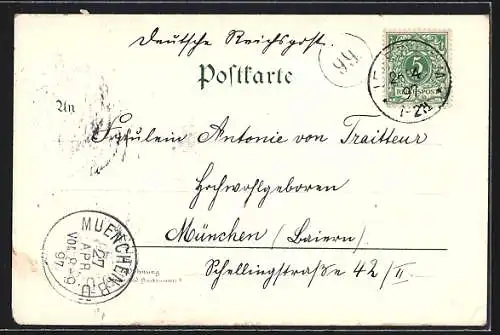 Deutsche Reichspost.
99
Postkarte
5
REICHSPOST
26 4
97
7-8N
An
Fräulein Antonie von Traitteur
Hochwohlgeboren
München (Baiern)
Schellingstraße 42/II
MUENCHEN B.U.
27
APR
VOR 8-9
97